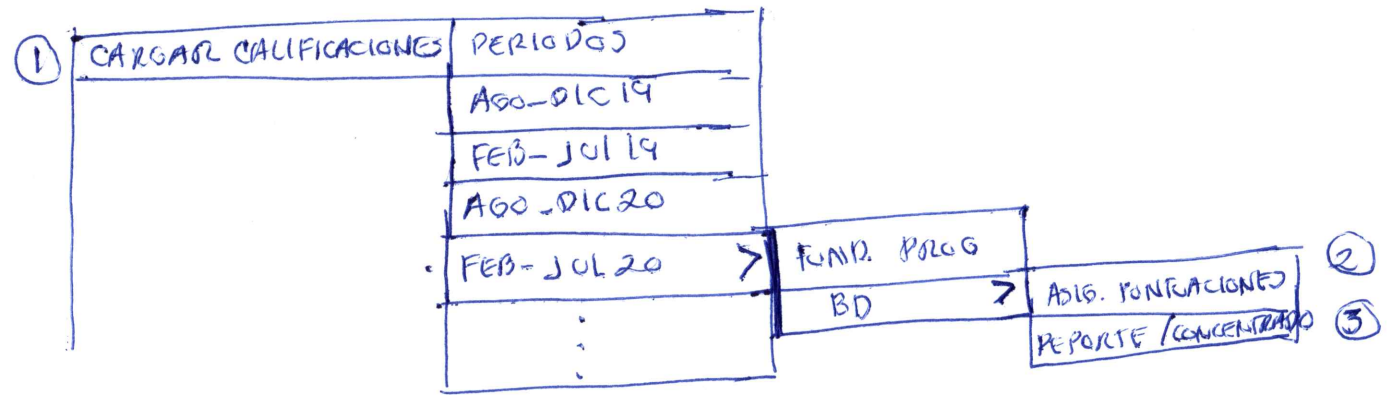 ① CARGAR CALIFICACIONES PERIODOS
AGO-DIC 19
FEB-JUL 19
AGO-DIC 20
FEB-JUL 20 > FUND. PROG
BD > ASIG. PUNTUACIONES ②
REPORTE / CONCENTRADO ③